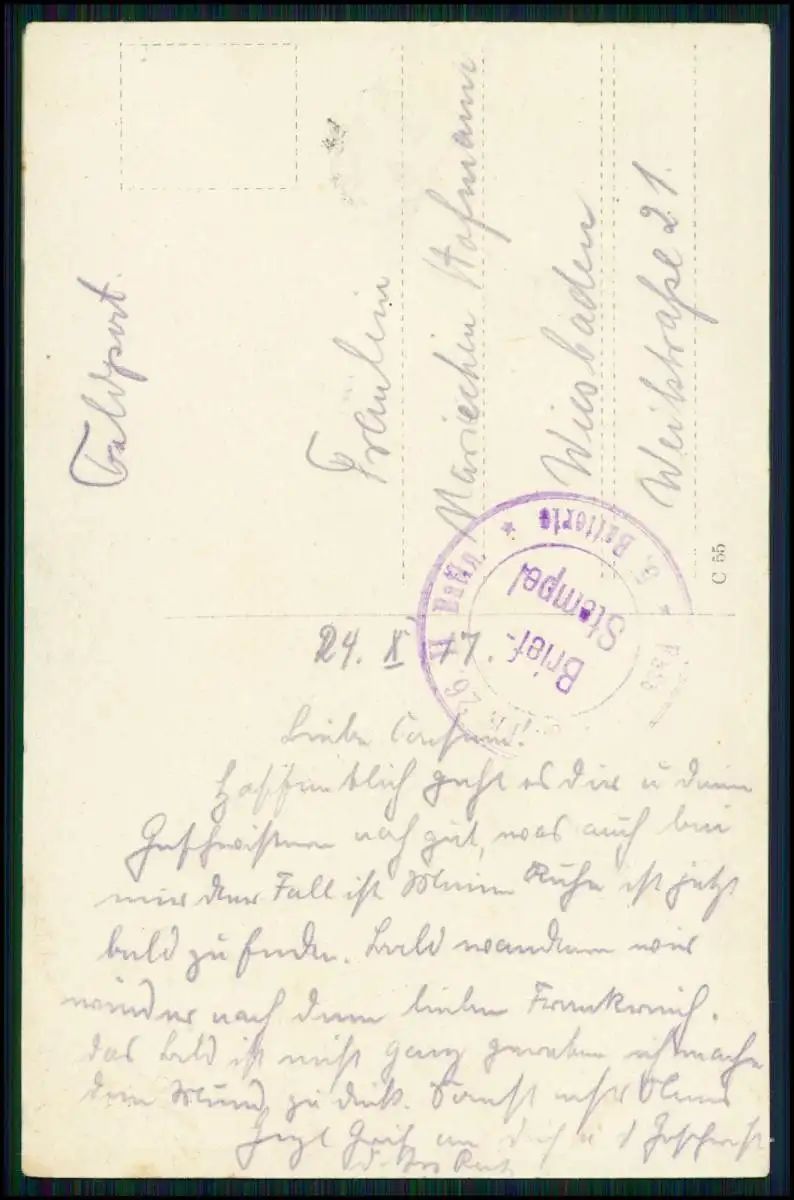 Feldpost.
Fräulein
Mariechen Hofmann
Wiesbaden
Weilstraße 21.
C 55
Brief-
Stempel
Battr.
Batterie
24. X. 17.
Liebe
Hoffentlich geht es dir u dein
Geschwistern noch gut, was auch bei
mir der Fall ist Meine Ruhe ist jetzt
bald zu Ende. Bald wandern wir
wieder nach dem lieben Frankreich.
Das Bild ist nicht ganz ich mache
den Mund zu dick. Sonst nichts Neues
Gruß an Dich u d Geschwist.